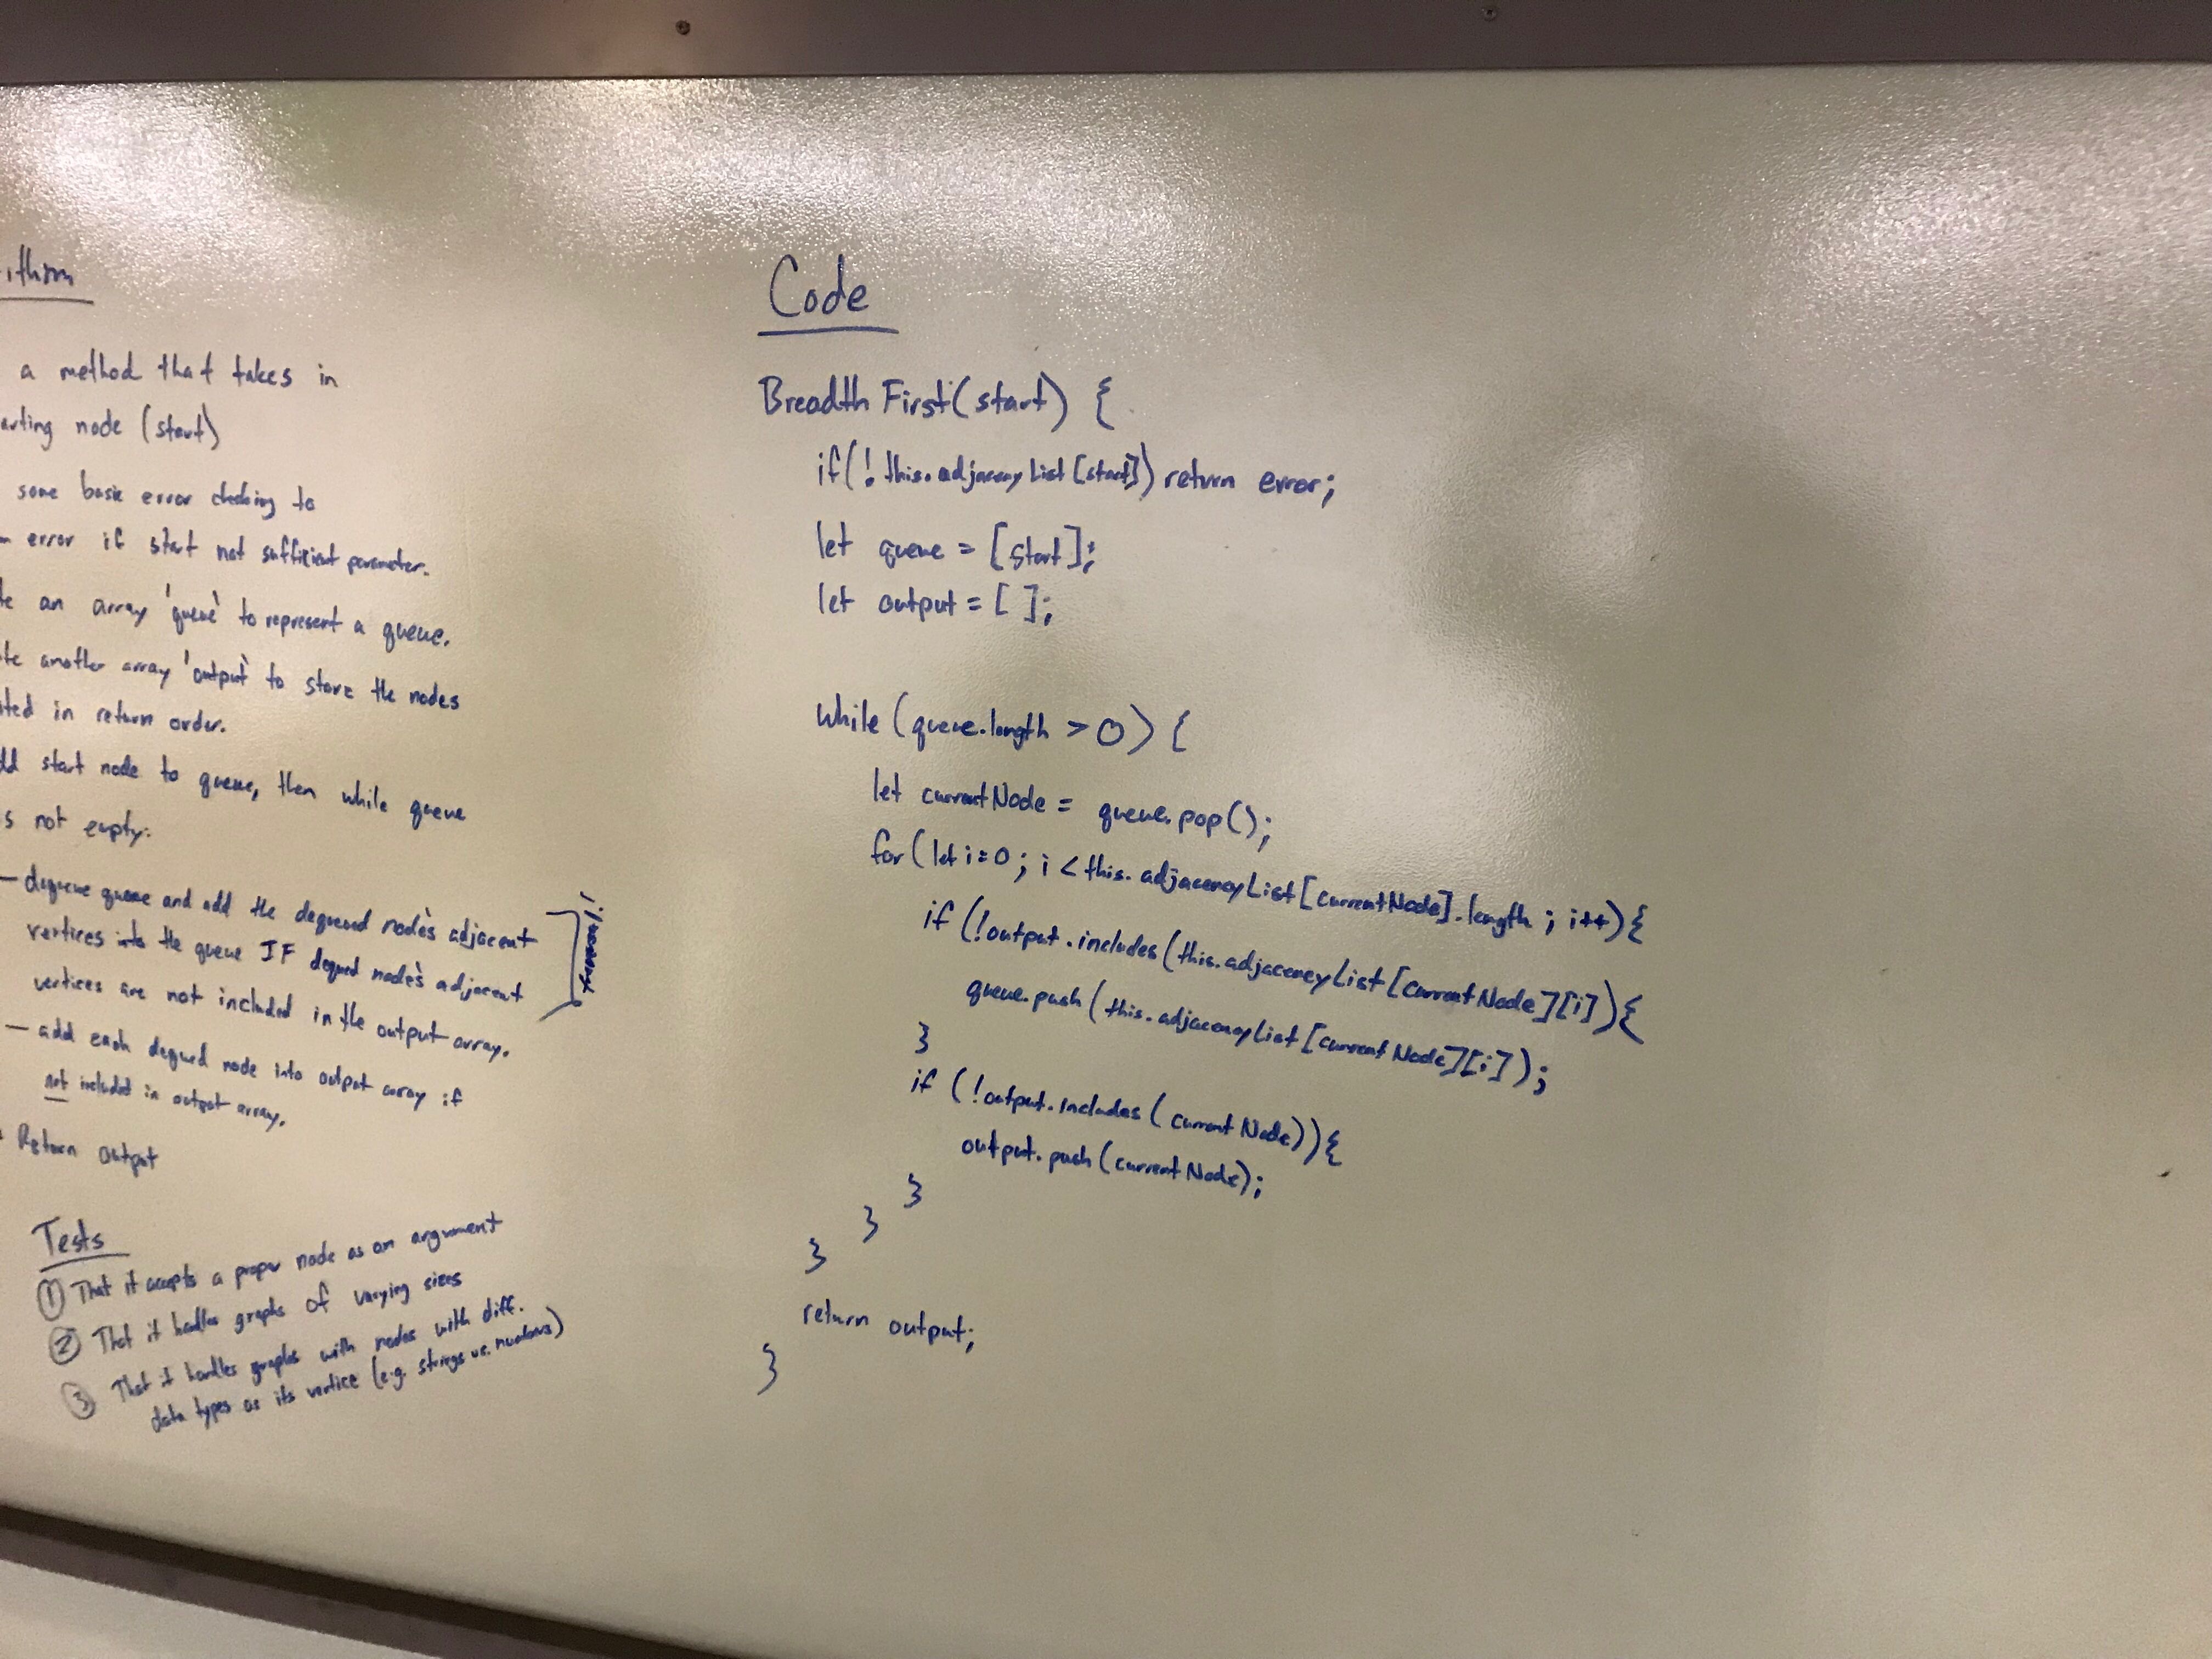 ithm
a method that takes in
arting node (start)
some basic error checking to
error if start not sufficient parameter.
te an array 'queue' to represent a queue.
te another array 'output' to store the nodes
ted in return order.
dd start node to queue, then while queue
s not empty:
— dequeue queue and add the dequeued node's adjacent
vertices into the queue IF dequed node's adjacent
vertices are not included in the output array.
— add each dequed node into output array if
not included in output array.
Return Output
Tests
① That it accepts a proper node as an argument
② That it handles graphs of varying sizes
③ That it handles graphs with nodes with diff.
data types as its vertice (e.g. strings vs. numbers)
Code
BreadthFirst(start) {
if(!this.adjacencyList[start]) return error;
let queue = [start];
let output = [ ];
while (queue.length > 0) {
let currentNode = queue.pop();
for (let i=0; i < this.adjacencyList[currentNode].length; i++){
if (!output.includes(this.adjacencyList[currentNode][i]){
queue.push(this.adjacencyList[currentNode][i]);
}
if (!output.includes(currentNode)){
output.push(currentNode);
}
}
}
return output;
}